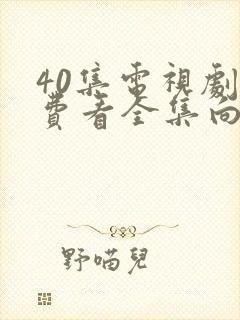 40集電視劇
費看全集向
野喵兒